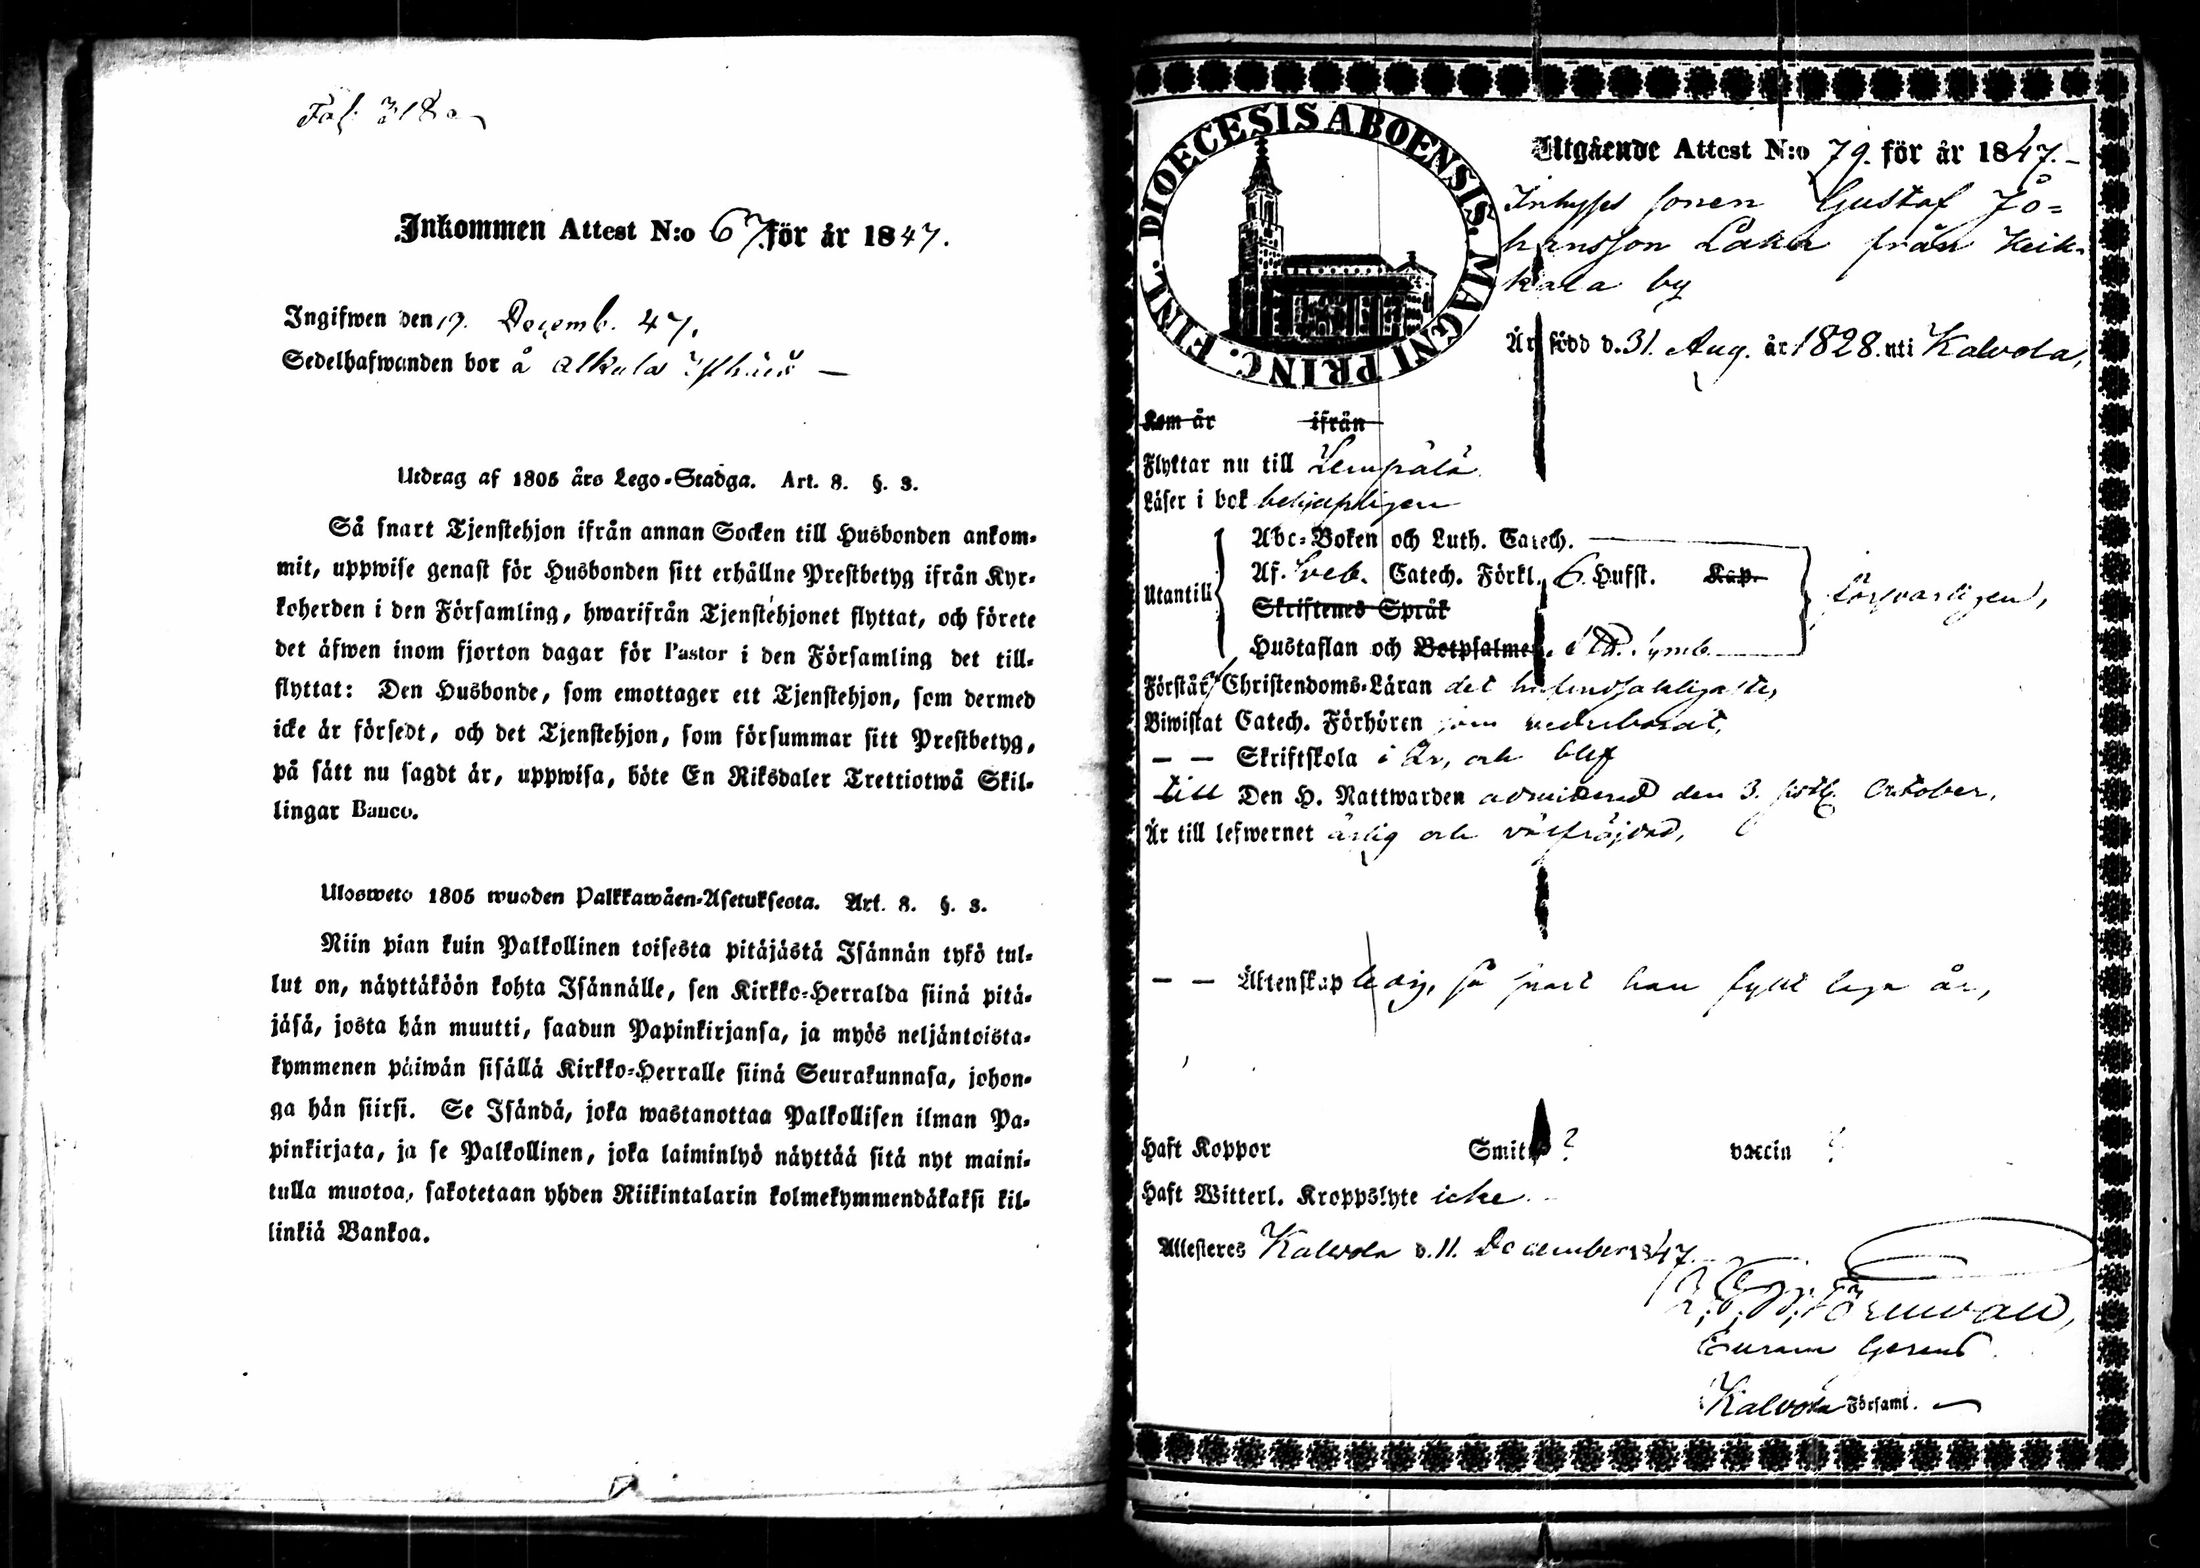 Fol: 318
Inkommen Attest N:o 67 för år 1847.
Ingifwen den 19. Decemb. 47.
Sedelhafwanden bor å Alkula
Utdrag af 1805 års Lego-Stadga. Art. 8. §. 3.
Så snart Tjenstehjon ifrån annan Socken till Husbonden ankom-
mit, uppwise genast för Husbonden sitt erhållne Prestbetyg ifrån Kyr-
koherden i den Församling, hwarifrån Tjenstehjonet flyttat, och förete
det äfwen inom fjorton dagar för Pastor i den Församling det till-
flyttat: Den Husbonde, som emottager ett Tjenstehjon, som dermed
icke är försedt, och det Tjenstehjon, som försummar sitt Prestbetyg,
på sätt nu sagdt är, uppwisa, böte En Riksdaler Trettiotwå Skil-
lingar Banco.
Ulosweto 1805 wuoden Palkkawäen-Asetuksesta. Art. 8. §. 3.
Niin pian kuin Palkollinen toisesta pitäjästä Isännän tykö tul-
lut on, näyttäköön kohta Isännälle, sen Kirkko-Herralda siinä pitä-
jäsä, josta hän muutti, saadun Papinkirjansa, ja myös neljäntoista-
kymmenen päiwän sisällä Kirkko-Herralle siinä Seurakunnasa, johon-
ga hän siirsi. Se Isändä, joka wastanottaa Palkollisen ilman Pa-
pinkirjata, ja se Palkollinen, joka laiminlyö näyttää sitä nyt maini-
tulla muotoa, sakotetaan yhden Riikintalarin kolmekymmendäkaksi kil-
linkiä Bankoa.
DIOECESIS ABOENSIS. MAGNI PRINC. FINL.
Utgående Attest N:o 79. för år 1847.
Inhyses sonen Gustaf Jo-
hansson Laka från Heik-
kala by
Är född d. 31. Aug. år 1828. uti Kalvola,
Kom år ifrån
Flyttar nu till Lempälä
Läser i bok behjepligen
Abc-Boken och Luth. Catech.
Utantill Af. Sveb. Catech. Förkl. 6. Hufst. Kap. försvarligen,
Skriftenes Språk
Hustaflan och Botpsalmer. Symb.
Förstår af Christendoms-Läran det hufvudsakligaste,
Biwistat Catech. Förhören som vederbordt,
— — Skriftskola i år, och blef
till Den H. Nattwarden admitterad den 3. October.
Är till lefwernet ärlig och välfräjdad,
— — Äktenskap ledig, så snart han fyllt laga år,
Haft Koppor Smitt ? vaccin ?
Haft Witterl. Kroppslyte icke.
Attesteres Kalvola d. 11. December 1847.
Curam Gerens
Kalvola Församl.